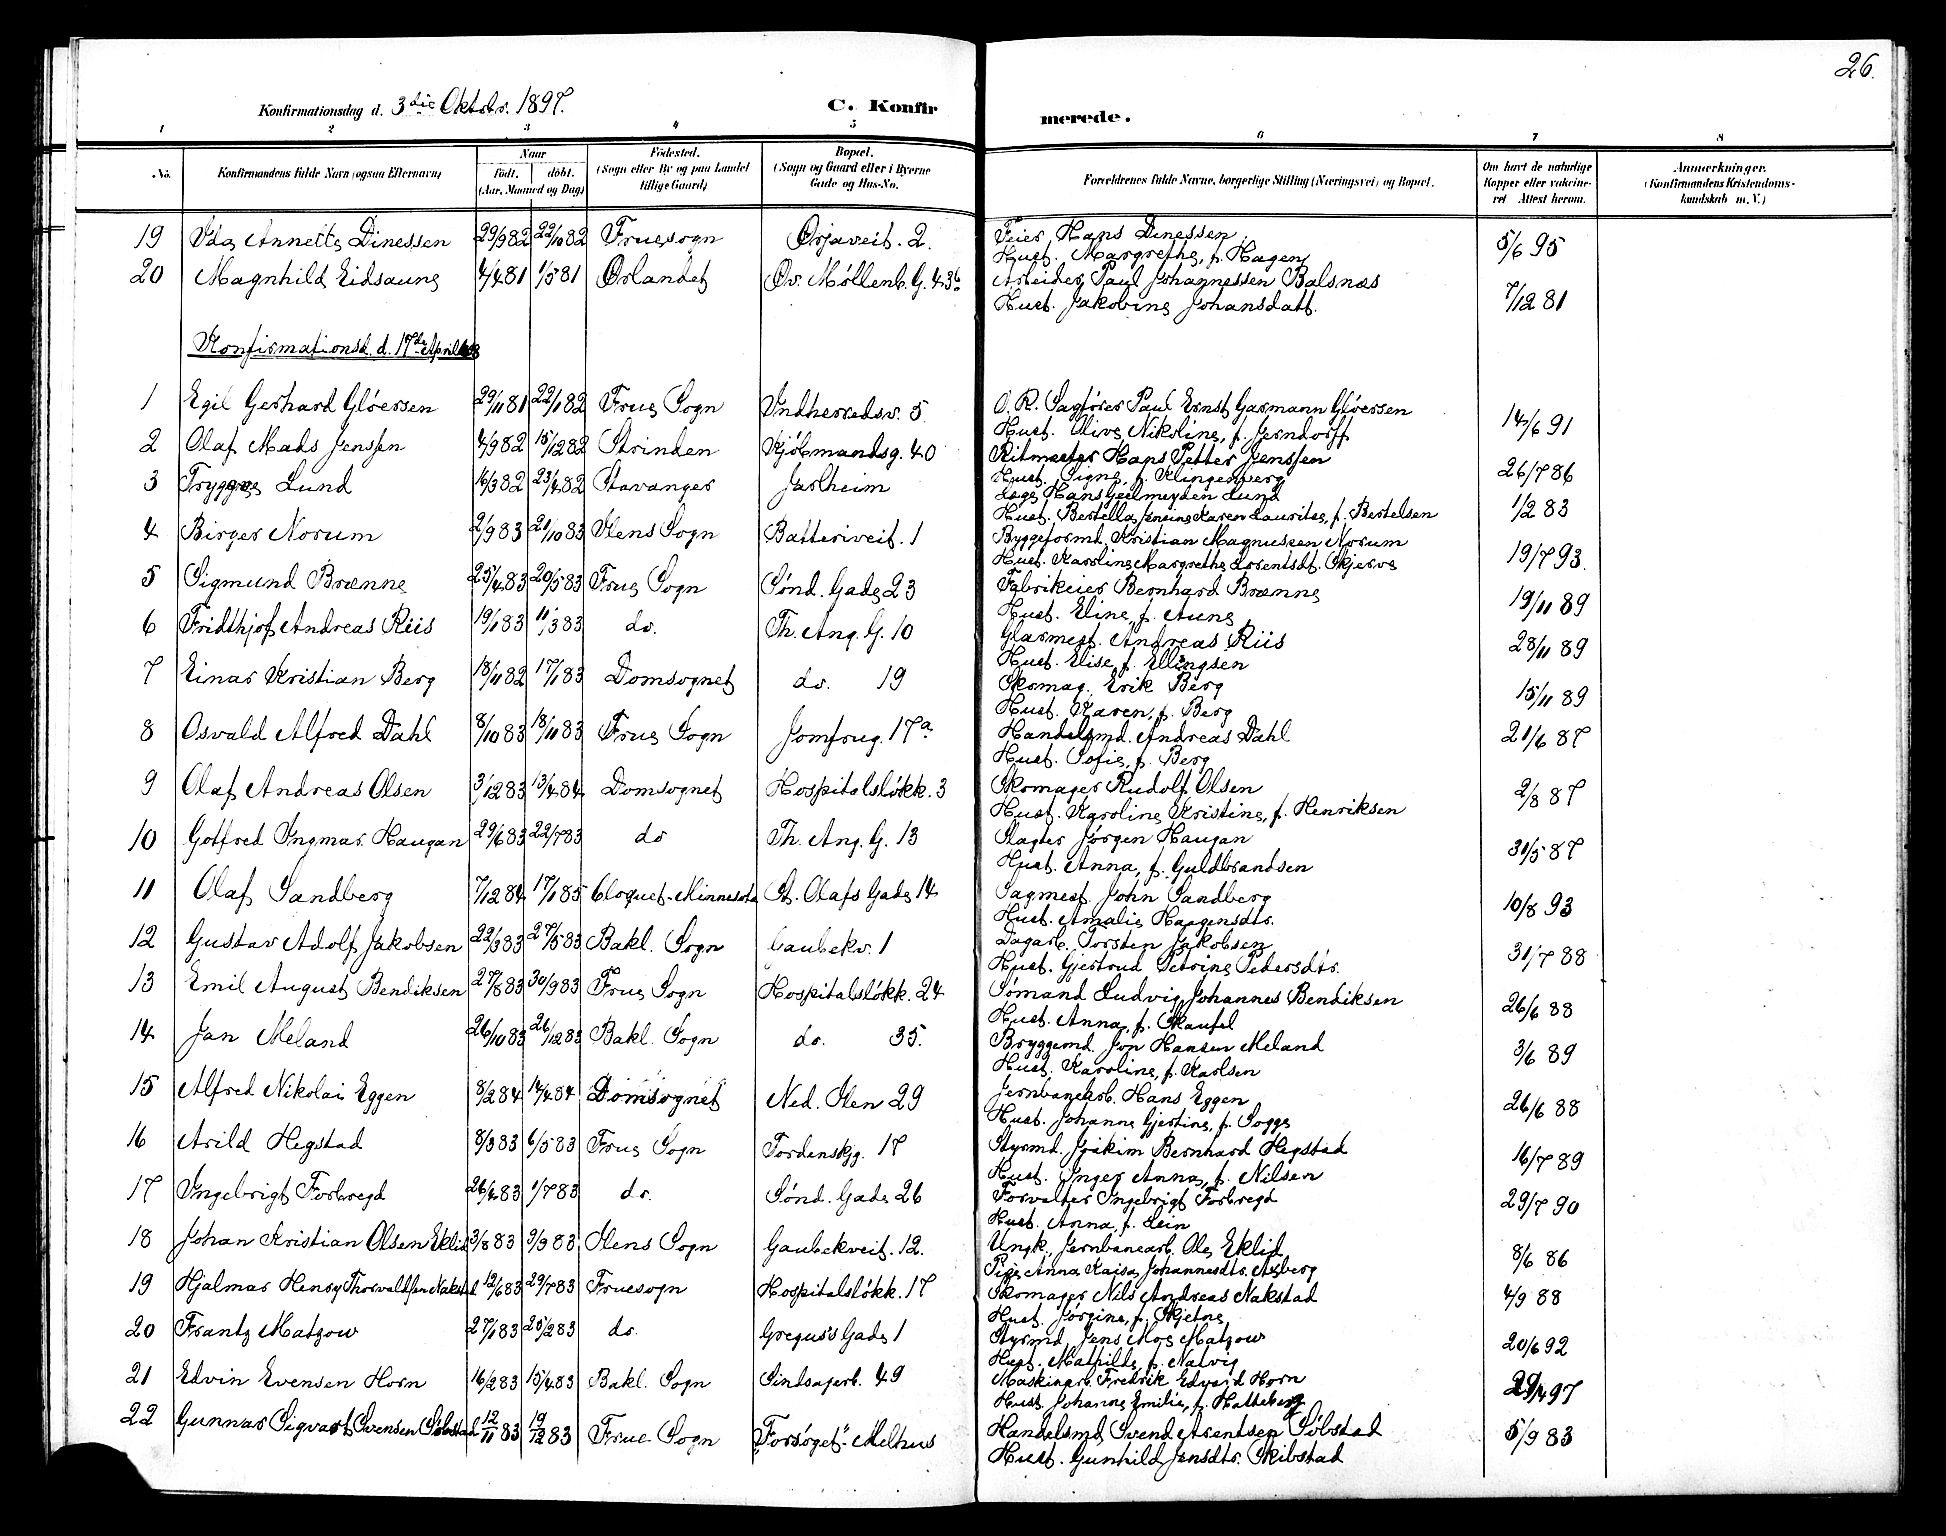 26.
Konfirmationsdag d. 3die Oktobr. 1897.
C. Konfirmerede.
1 2 3 4 5 6 7 8
No. Konfirmandens fulde Navn (ogsaa Efternavn) Naar født. døbt. (Aar, Maaned og Dag) Fødested. (Sogn eller By og paa Landet tillige Gaard) Bopæl. (Sogn og Gaard eller i Byerne Gade og Hus-No. Forældrenes fulde Navne, borgerlige Stilling (Næringsvei) og Bopæl. Om havt de naturlige Kopper eller vakcineret Attest herom. Anmærkninger. (Konfirmandens Kristendomskundskab m. V.)
19 Ida Annette Dinessen 29/9 82 22/10 82 Fruesogn Ørjaveit. 2. Feier Hans Dinessen 5/6 95
Hust. Margrethe, f. Hagen
20 Magnhild Eidsaune 4/4 81 1/5 81 Ørlandet Øv. Møllenb. G. 43b Arbeider Paul Johannessen Balsnæs 7/12 81
Hust. Jakobine Johansdatt.
Konfirmationsd. d. 17de April
1 Egil Gerhard Gløersen 29/11 81 22/1 82 Frue Sogn Indherredsv. 5. O. R. Sagfører Paul Ernst Garmann Gløersen 14/6 91
Hust. Olive Nikoline, f. Jerndorff
2 Olaf Mads Jenssen 4/9 82 15/12 82 Strinden Kjøbmandsg. 40 Ritmester Hans Petter Jenssen 26/7 86
Hust. Signe, f. Klingenberg
3 Tryggve Lund 16/3 82 23/4 82 Stavanger Jarlheim Læge Hans Geelmeyden Lund 1/2 83
Hust. Bertella Jensine Karen Lauritze, f. Bertelsen
4 Birger Norum 2/9 83 21/10 83 Ilens Sogn Batteriveit. 1 Byggeformd. Kristian Magnussen Norum 19/7 93.
Hust. Karoline Margrethe Lorentsdt. Skjerve
5 Sigmund Brænne 25/4 83 20/5 83 Frue Sogn Sønd. Gade 23 Fabrikeier Bernhard Brænne 19/11 89
Hust. Eline, f. Aune
6 Fridthjof Andreas Riis 19/1 83 11/3 83 do. Th. Ang. G. 10 Glarmest. Andreas Riis 28/11 89
Hust. Elise f. Ellingsen
7 Einar Kristian Berg 18/11 82 17/1 83 Domsognet do. 19 Skomag. Erik Berg 15/11 89
Hust. Karen, f. Berg
8 Osvald Alfred Dahl 8/10 83 18/11 83 Frue Sogn Jomfrug. 17a. Handelsmd. Andreas Dahl 21/6 87
Hust. Sofie, f. Berg
9 Olaf Andreas Olsen 3/12 83 13/4 84 Domsognet Hospitalsløkk. 3 Skomager Rudolf Olsen 2/8 87
Hust. Karoline Kristine, f. Henriksen
10 Gotfred Ingmar Haugan 29/6 83 22/7 83 do Th. Ang. G. 13 Slagter Jørgen Haugan 31/5 87
Hust. Anna, f. Guldbrandsen
11 Olaf Sandberg 7/12 84 17/1 85 Cloquet-Minnesota St. Olafs Gade 14 Sagmest. John Sandberg 10/8 93
Hust. Amalie Haagensdtr.
12 Gustav Adolf Jakobsen 22/3 83 27/5 83 Bakl. Sogn Gaubekv. 1 Dagarb. Torsten Jakobsen 31/7 88
Hust. Gjertrud Petrine Pedersdtr.
13 Emil August Bendiksen 27/8 83 30/9 83 Frue Sogn Hospitalsløkk. 24 Sømand Ludvig Johannes Bendiksen 26/6 88
Hust. Anna, f. Skaufel
14 Jan Meland 26/10 83 26/12 83 Bakl. Sogn do. 35. Bryggemd. Jon Hansen Meland 3/6 89
Hust. Karoline, f. Karlsen
15 Alfred Nikolai Eggen 8/2 84 14/4 84 Domsognet Ned. Ilen 29 Jernbanearb. Hans Eggen 26/6 88
Hust. Johanne Gjertine, f. Sogge
16 Arild Hegstad 8/3 83 6/5 83 Frue Sogn Tordenskjg. 17 Styrmd. Joakim Bernhard Hegstad 16/7 89
Hust. Inger Anna, f. Nilsen
17 Ingebrigt Forbregd 26/4 83 1/7 83 do. Sønd. Gade 26 Forvalter Ingebrigt Forbregd 29/7 90
Hust. Anna, f. Lein
18 Johan Kristian Olsen Eklid 3/8 83 9/9 83 Ilens Sogn Gaubekveit. 12. Ungk., Jernbanearb. Ole Eklid 8/6 86
Pige Anna Kaisa Johannesdtr. Aaberg
19 Hjalmar Henry Thorvaldsen Nakstad 12/6 83 29/7 83 Fruesogn Hospitalsløkk. 17 Skomager Nils Andreas Nakstad 4/9 88
Hust. Jørgine, f. Skjetne
20 Frantz Matzow 27/1 83 25/2 83 do. Gregus's Gade 1 Styrmd. Jens Moe Matzow 20/6 92
Hust. Mathilde, f. Natvig
21 Edvin Evensen Horn 16/2 83 15/4 83 Bakl. Sogn Sindsagerb. 49 Maskinarb. Fredrik Edvard Horn 29/4 97
Hust. Johanne Emilie, f. Hatteberg
22 Gunnar Sigvart Svensen Søbstad 12/11 83 19/12 83 Frue Sogn "Forsøget"- Melhus Handelsmd. Svend Arentsen Søbstad 5/9 83
Hust. Gunhild Jensdtr. Skibstad